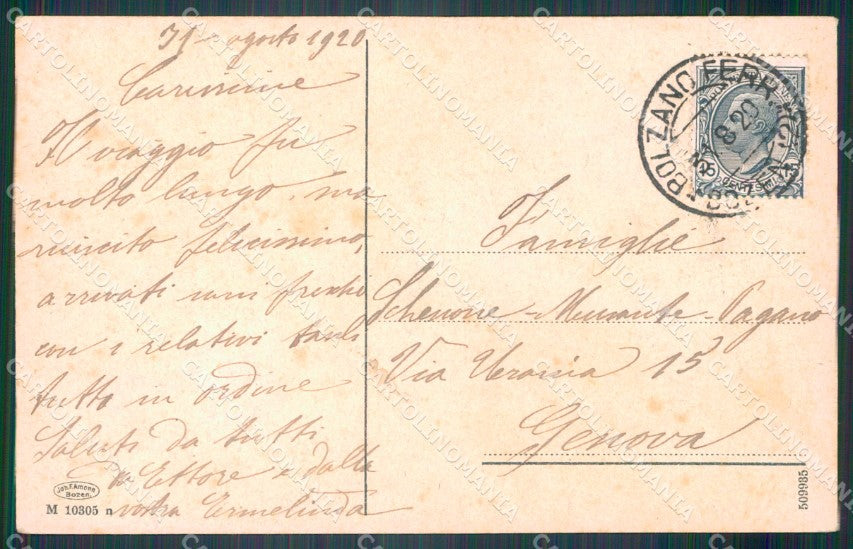 31 - agosto 1920
Carissime
Il viaggio fu
molto lungo, ma
riuscito felicissimo,
arrivati
con i relativi
tutto in ordine
Saluti da tutti
Ettore e dalla
vostra Ermelinda
Joh. F. Amonn
Bozen.
M 10305 n
BOLZANO FERR.
8.20
CENT
Famiglie
Schenone - Murante - Pagano
Via Urania 15
Genova
509985
CARTOLINOMANIA